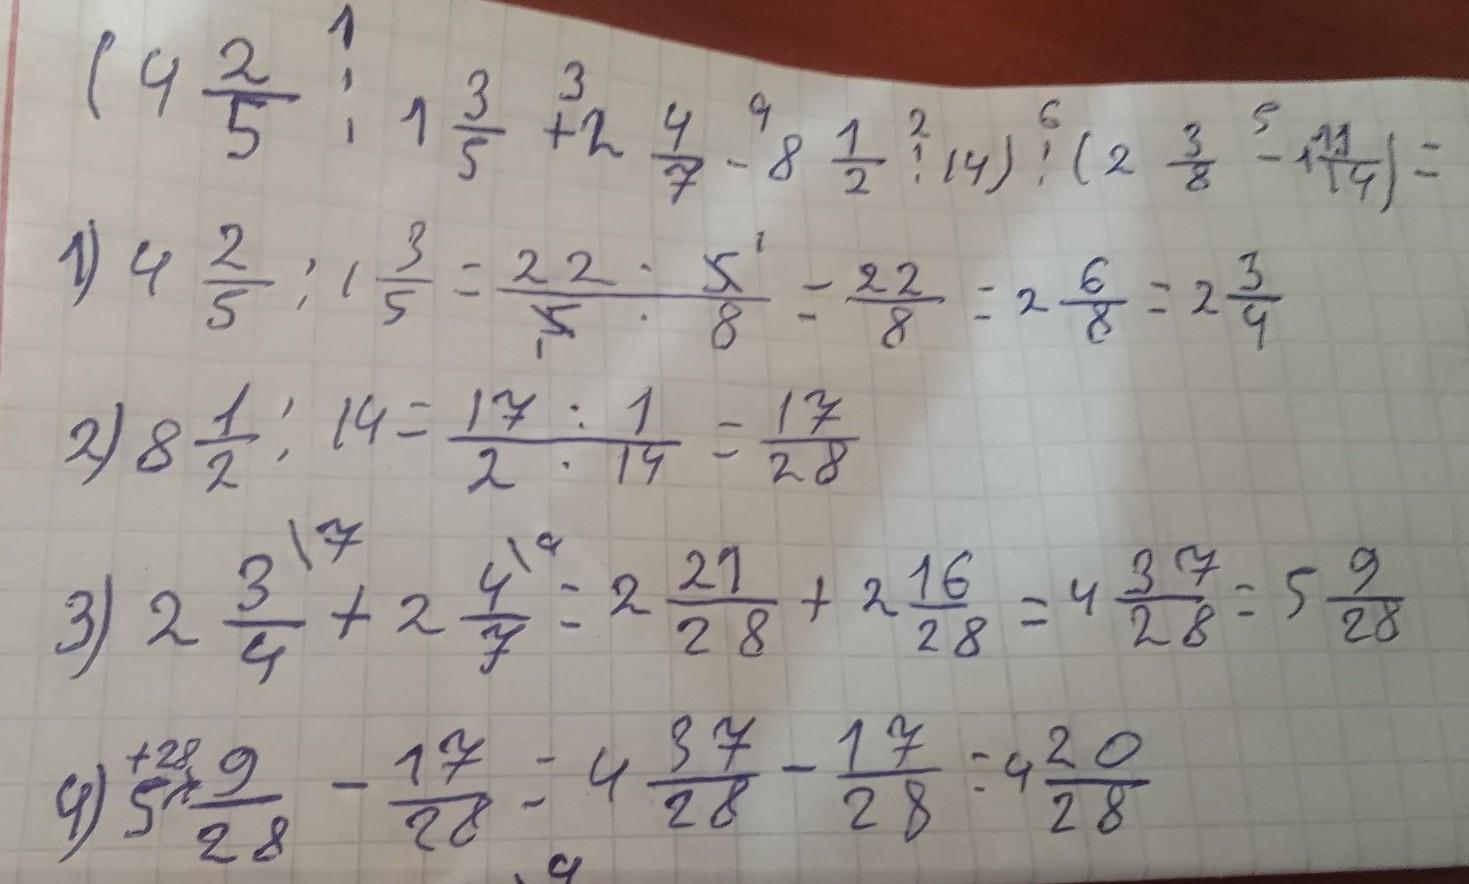 (4 2/5 : 1 3/5 + 2 4/7 - 8 1/2 : 14) : (2 3/8 - 1 11/14) =
1) 4 2/5 : 1 3/5 = 22 · 5/5 · 8 = 22/8 = 2 6/8 = 2 3/4
2) 8 1/2 : 14 = 17 · 1/2 · 14 = 17/28
3) 2 3/4 \7 + 2 4/7 \4 = 2 21/28 + 2 16/28 = 4 37/28 = 5 9/28
4) 5 +28 9/28 - 17/28 = 4 37/28 - 17/28 = 4 20/28